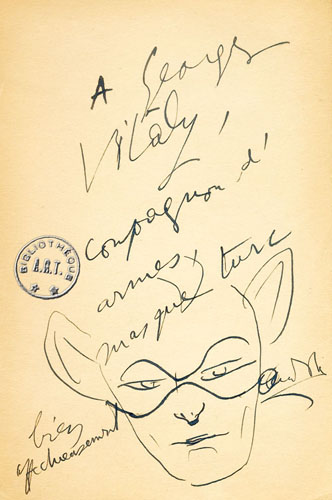 A Georges
Vitaly,
compagnon d'
armes,
masque turc
BIBLIOTHÈQUE
A.R.T.
bien
affectueusement